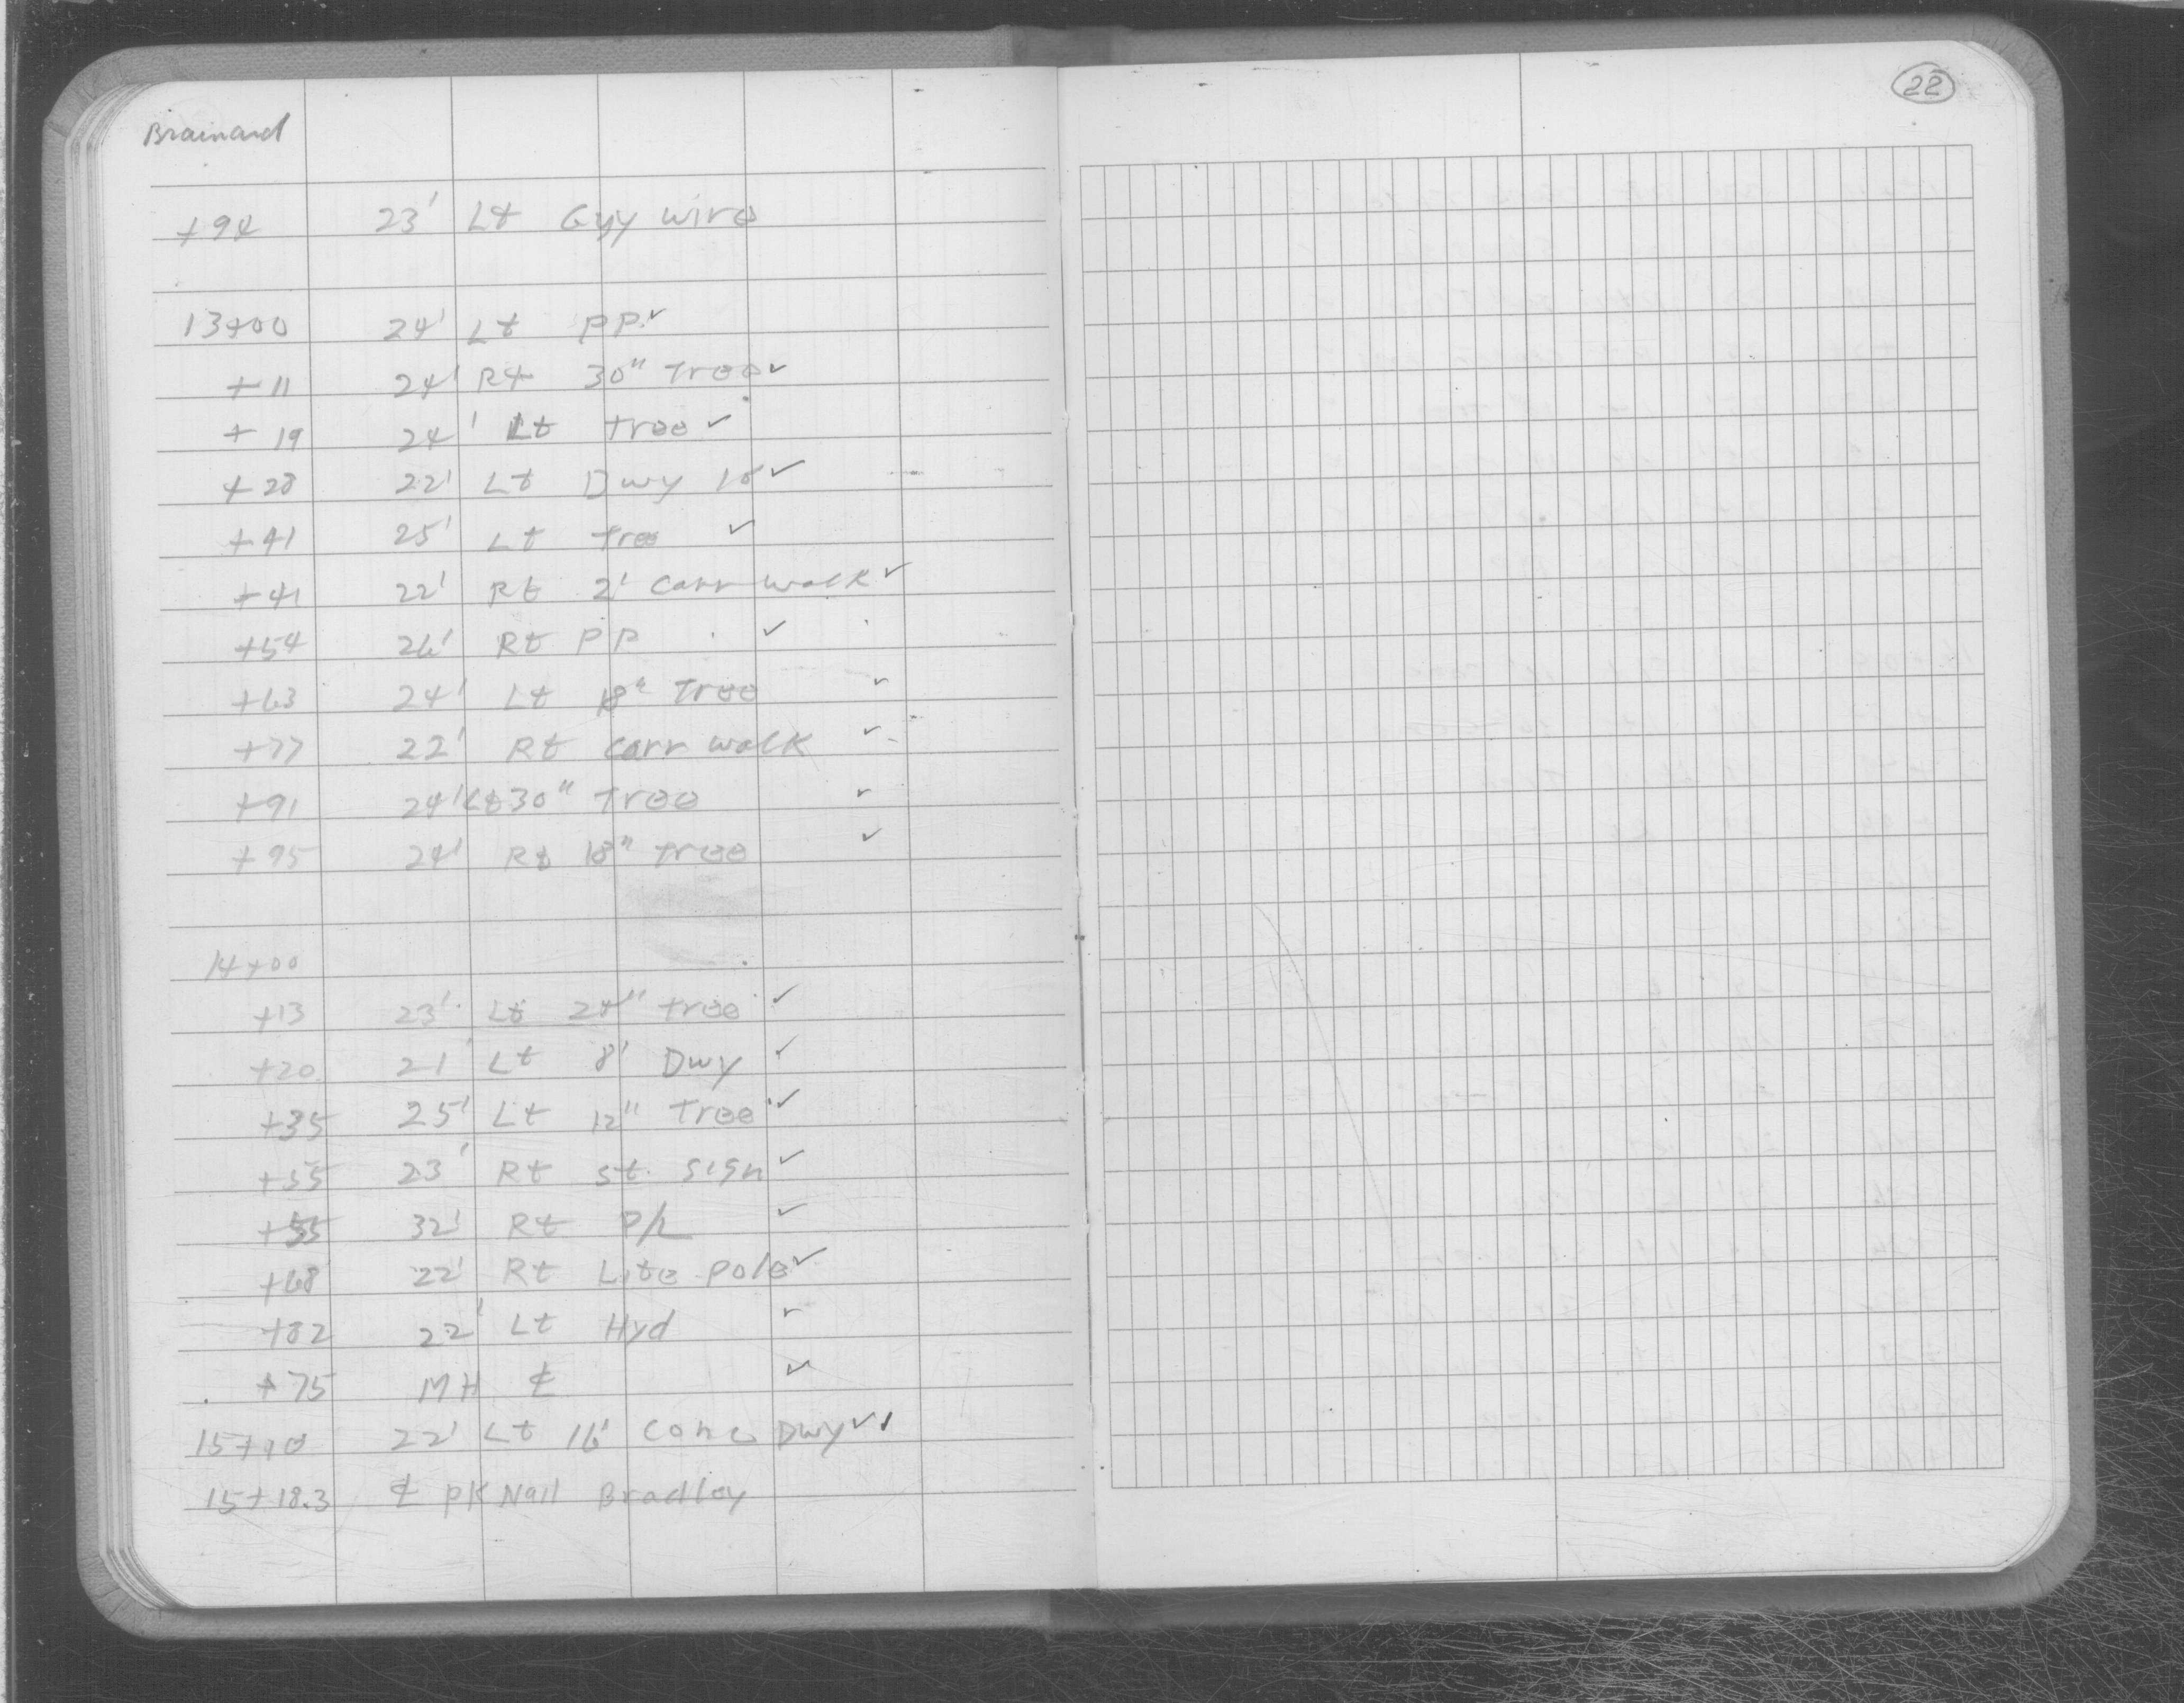 22
Brainard
+94 23' Lt Guy wire
13+00 24' Lt PP ✓
+11 24' Rt 30" Tree ✓
+19 24' Lt Tree ✓
+28 22' Lt Dwy ✓
+41 25' Lt Tree ✓
+41 22' Rt 2' Carr walk ✓
+54 26' Rt PP ✓
+63 24' Lt 18" Tree ✓
+77 22' Rt Carr walk ✓
+91 24' Lt 30" Tree ✓
+95 24' Rt 18" Tree ✓
14+00
+13 23' Lt 24" Tree ✓
+20 21' Lt 8' Dwy ✓
+35 25' Lt 12" Tree ✓
+55 23' Rt St. Sign ✓
+55 32' Rt P/L ✓
+68 22' Rt Lite pole ✓
+82 22' Lt Hyd ✓
+75 MH ₵ ✓
15+10 22' Lt 16' Conc Dwy ✓✓
15+18.3 ₵ PK Nail Bradley